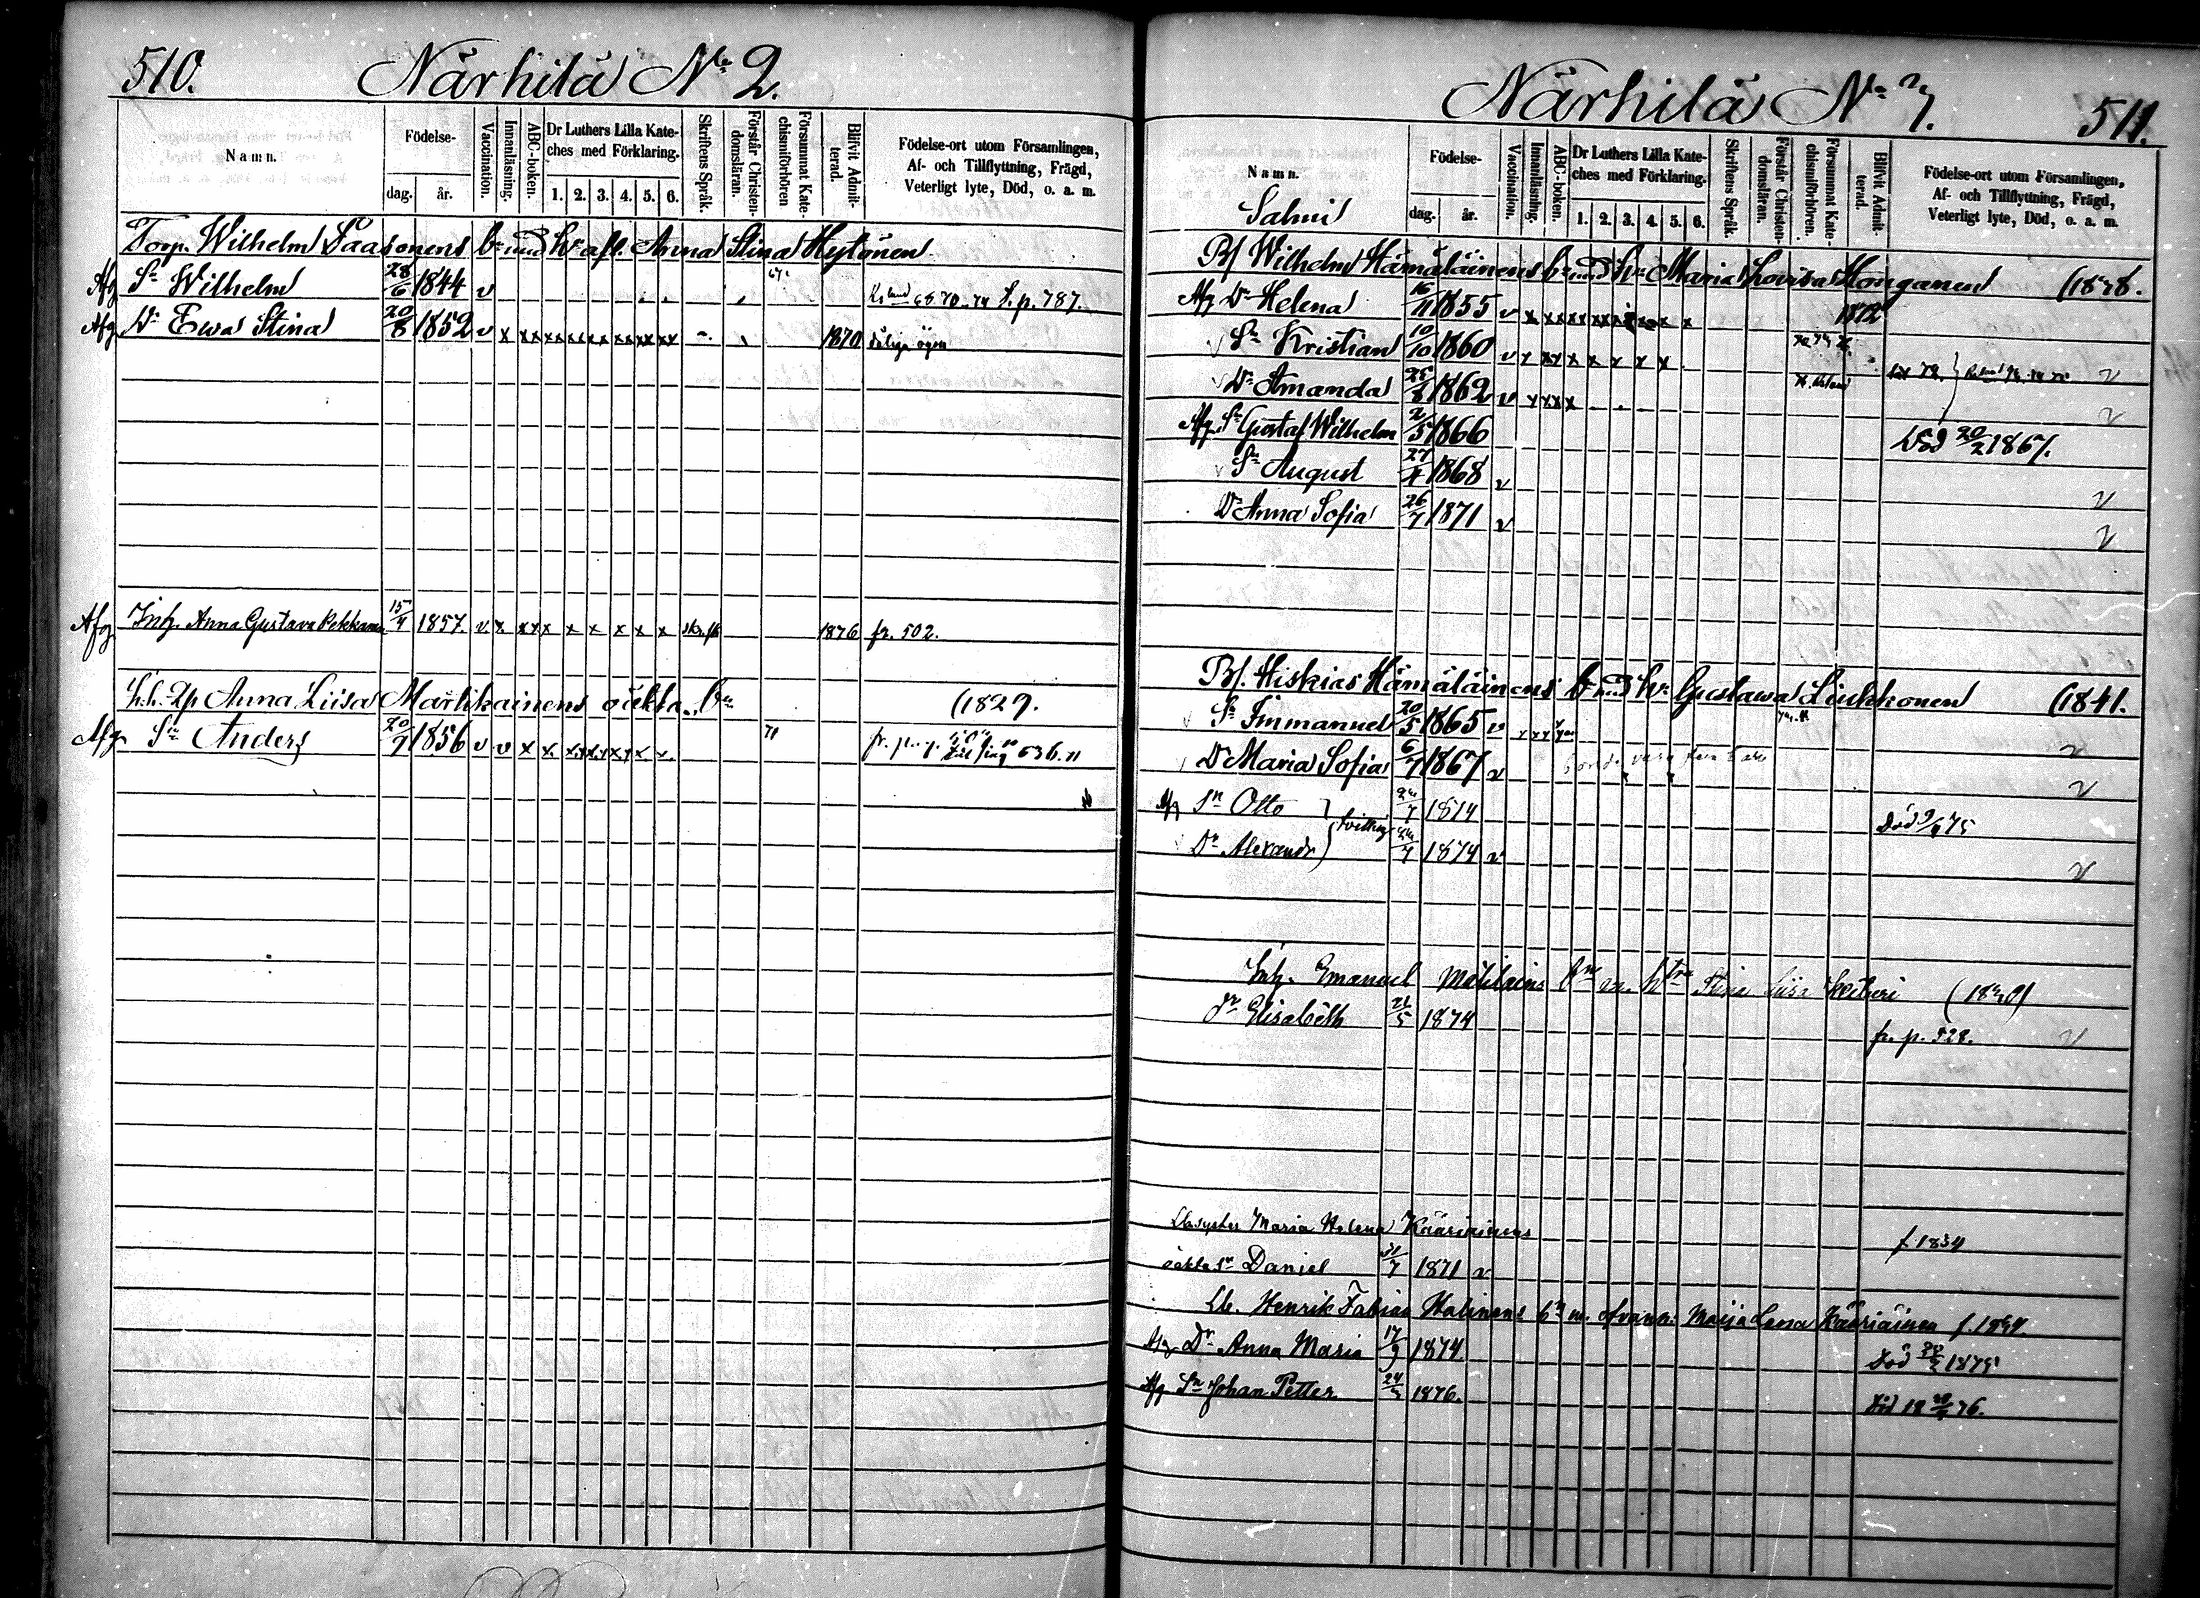 510. Närhilä No 2.
Namn.
Födelse-
dag. år.
Vaccination.
Innanläsning.
ABC-boken.
Dr Luthers Lilla Kate-
ches med Förklaring.
1. 2. 3. 4. 5. 6.
Skriftens Språk.
Förstår Christen-
domsläran.
Försummat Kate-
chismiförhören
Blifvit Admit-
terad.
Födelse-ort utom Församlingen,
Af- och Tillflyttning, Frägd,
Veterligt lyte, Död, o. a. m.
Torp. Wilhelm Paasonens bn med h. afl. Anna Stina Hytönen
Afg Sn Wilhelm 28/6 1844 v p. 787.
Afg Dr Ewa Stina 20/8 1852 v x xx xx xx xx xx xx xx 1870 dåliga ögon
Afg Inh. Anna Gustava Pekkanen 15/4 1857. v. x. xx x x x x x x 1876 fr. 502.
Anna Liisa Martikainens oäkta bn (1827.
Afg. Sn Anders 20/7 1856 v v x x 71 636.
Närhilä No 7. 511.
Namn.
Födelse-
dag. år.
Vaccination.
Innanläsning.
ABC-boken.
Dr Luthers Lilla Kate-
ches med Förklaring.
1. 2. 3. 4. 5. 6.
Skriftens Språk.
Förstår Christen-
domsläran.
Försummat Kate-
chismiförhören.
Blifvit Admit-
terad.
Födelse-ort utom Församlingen,
Af- och Tillflyttning, Frägd,
Veterligt lyte, Död, o. a. m.
Salmi
B/ Wilhelm Hämäläinens bn med h. Maria Lovisa Honganen (1828.
Afg Dr Helena 16/11 1855 v 1872
v Sn Kristian 10/10 1860 v x xx x x x x x
v Dr Amanda 25/8 1862 v x xx x v
Afg. Sn Gustaf Wilhelm 2/5 1866 Död 20/2 1867.
v Sn August 27/4 1868 v v
Dr Anna Sofia 26/7 1871 v v
B/. Hiskias Hämäläinens bn med h. Gustawa Liukkonen (1841.
v Sn Immanuel 20/5 1865 v v
v Dr Maria Sofia 6/7 1867 v v
Afg Sn Otto 1874 Död 75
Dr Alexandr 1874 v v
Inh. Emanuel Stina Liisa (18
Dr Elisabeth 21/5 1874 fr. p. 528. v
Maria Helena Kääriäinens f. 1834
oäkta Sn Daniel 31/7 1871 v
Henrik Fabian Halinens bn m. Maija Lena Kääriäinen
Afg Dr Anna Maria 17/9 1874 Död 1875
Afg Sn Johan Petter 1876. Död 76.